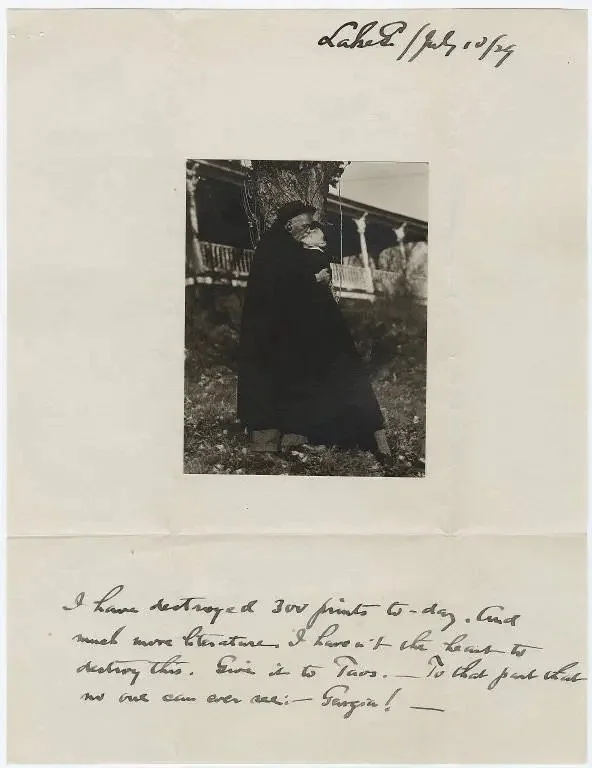 Lake G / July 10/29
I have destroyed 300 prints to-day. And
much more literature. I haven't the heart to
destroy this. Give it to Taos. — To that part that
no one can ever see: — Georgia! —